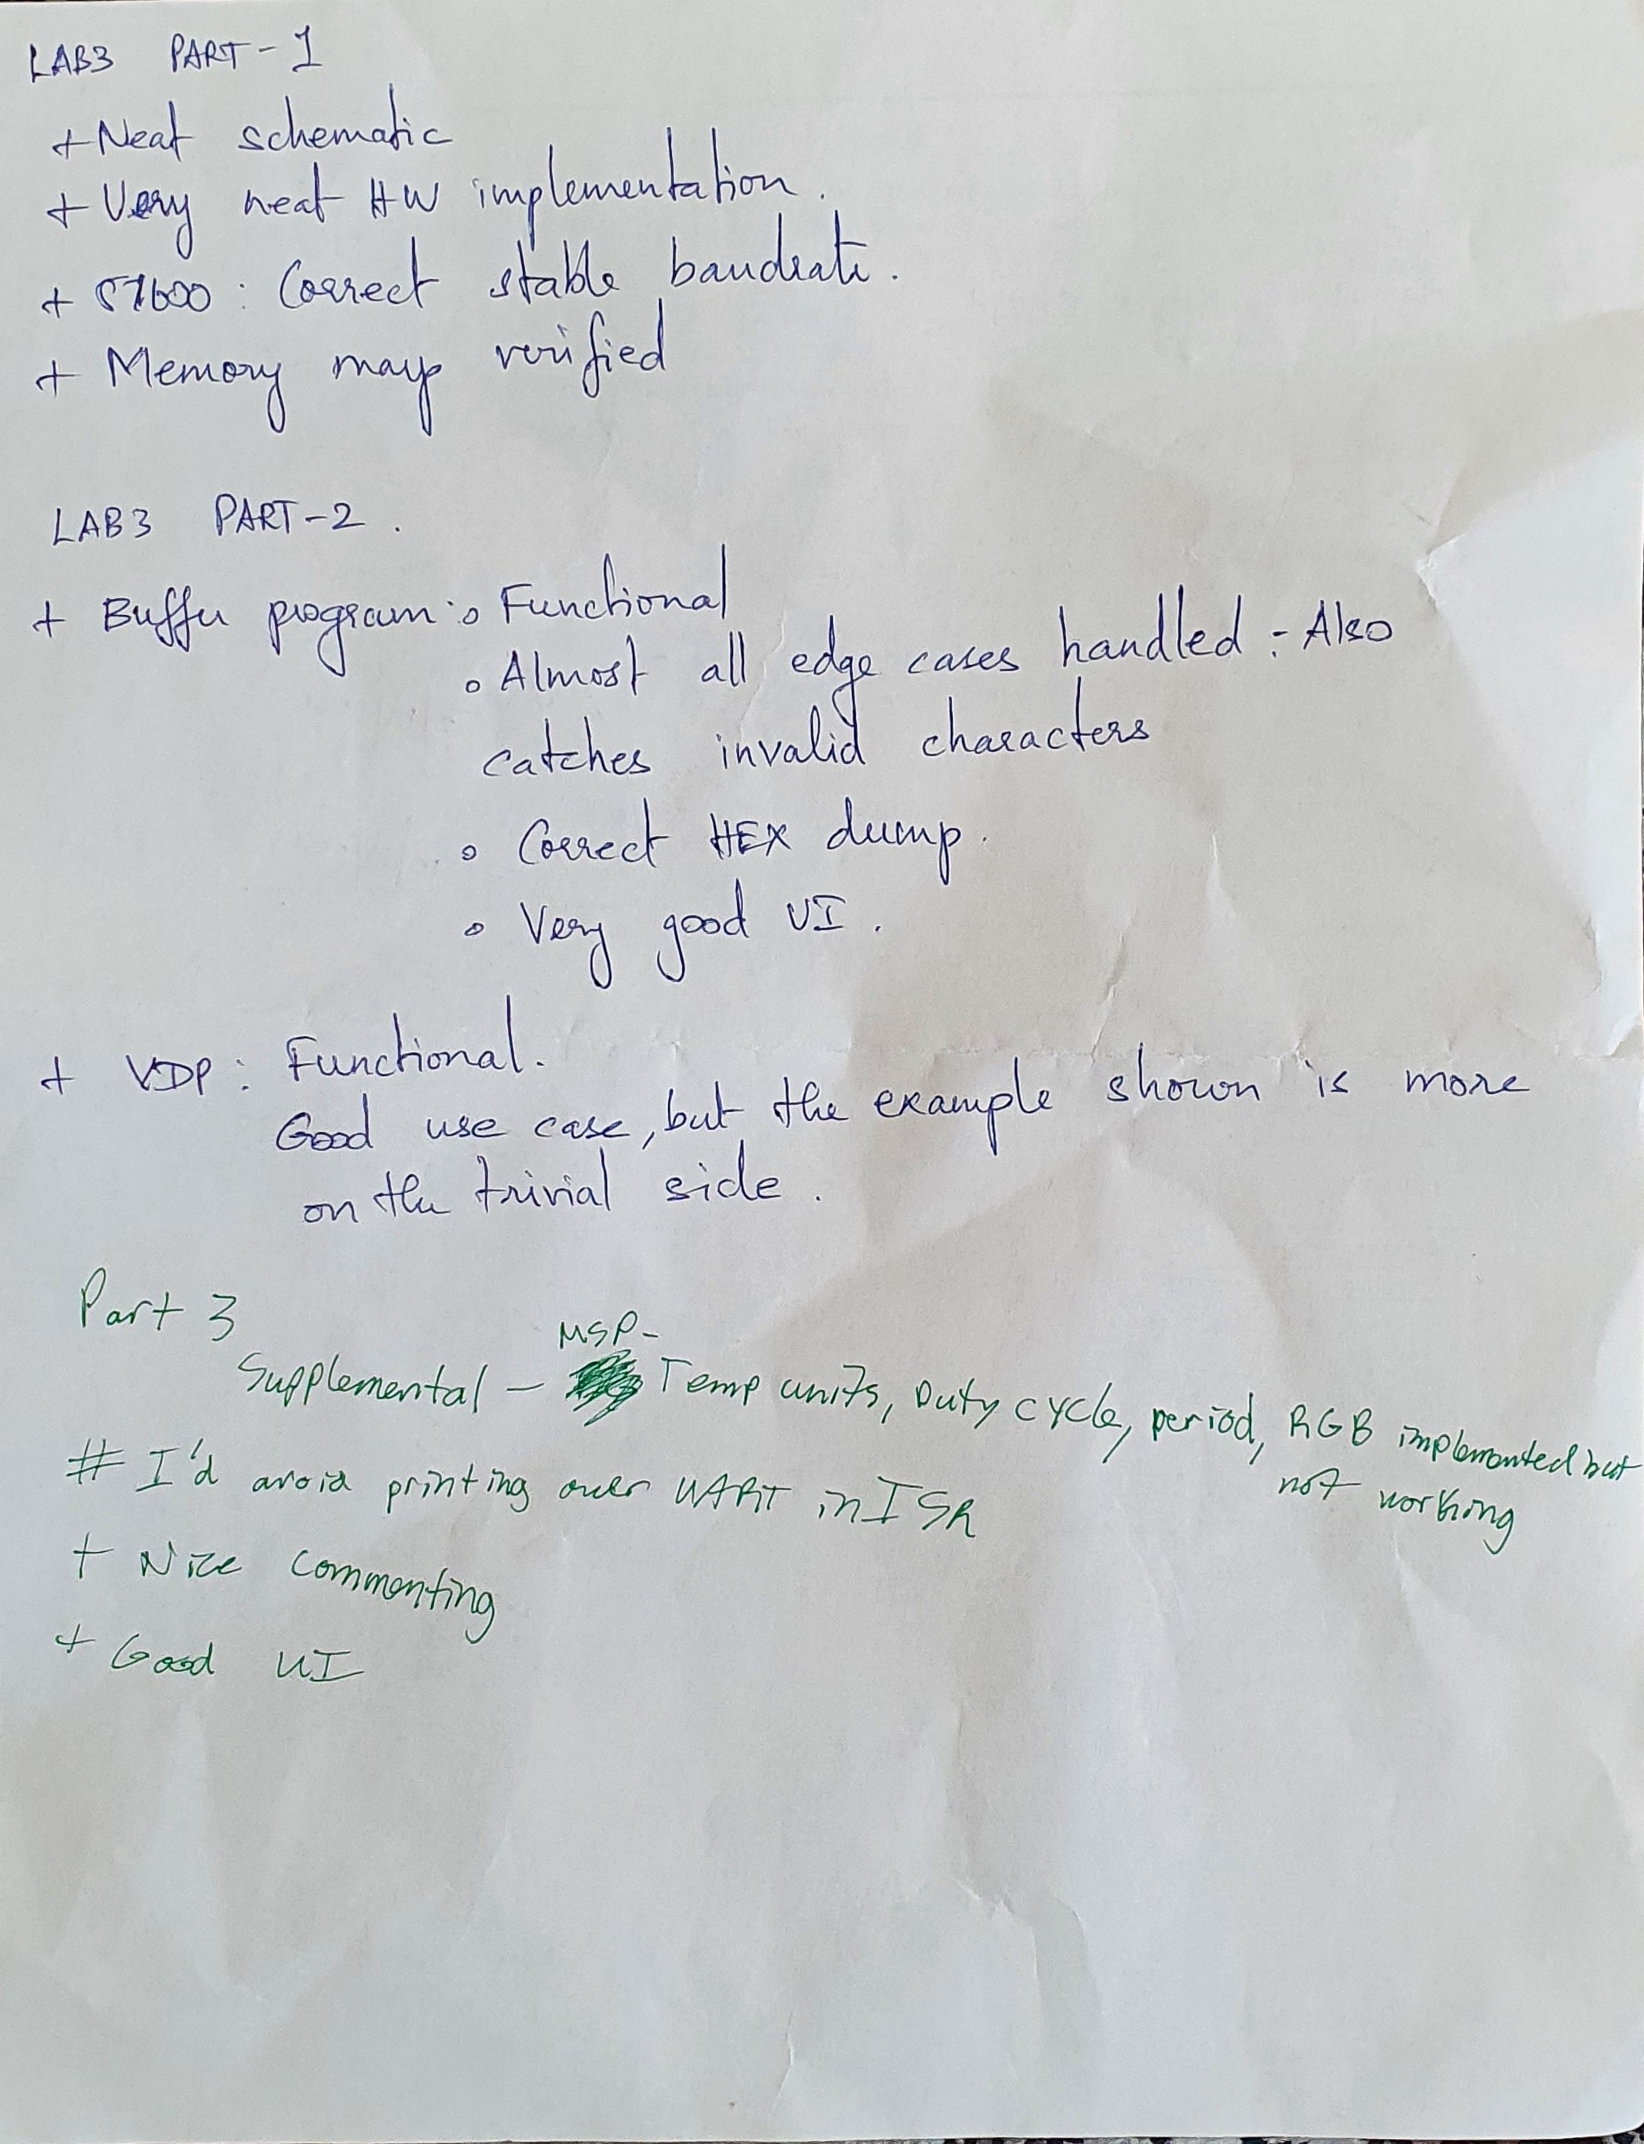 LAB3 PART-1
+ Neat schematic
+ Very neat HW implementation.
+ 57600 : Correct stable baudrate.
+ Memory map verified
LAB3 PART-2.
+ Buffer program : o Functional
o Almost all edge cases handled :- Also
catches invalid characters
o Correct HEX dump.
o Very good UI.
+ VDP : Functional.
Good use case, but the example shown is more
on the trivial side.
Part 3
MSP-
Supplemental - Temp units, Duty cycle, period, RGB implemented but
not working
# I'd avoid printing over UART in ISR
+ Nice commenting
+ Good UI